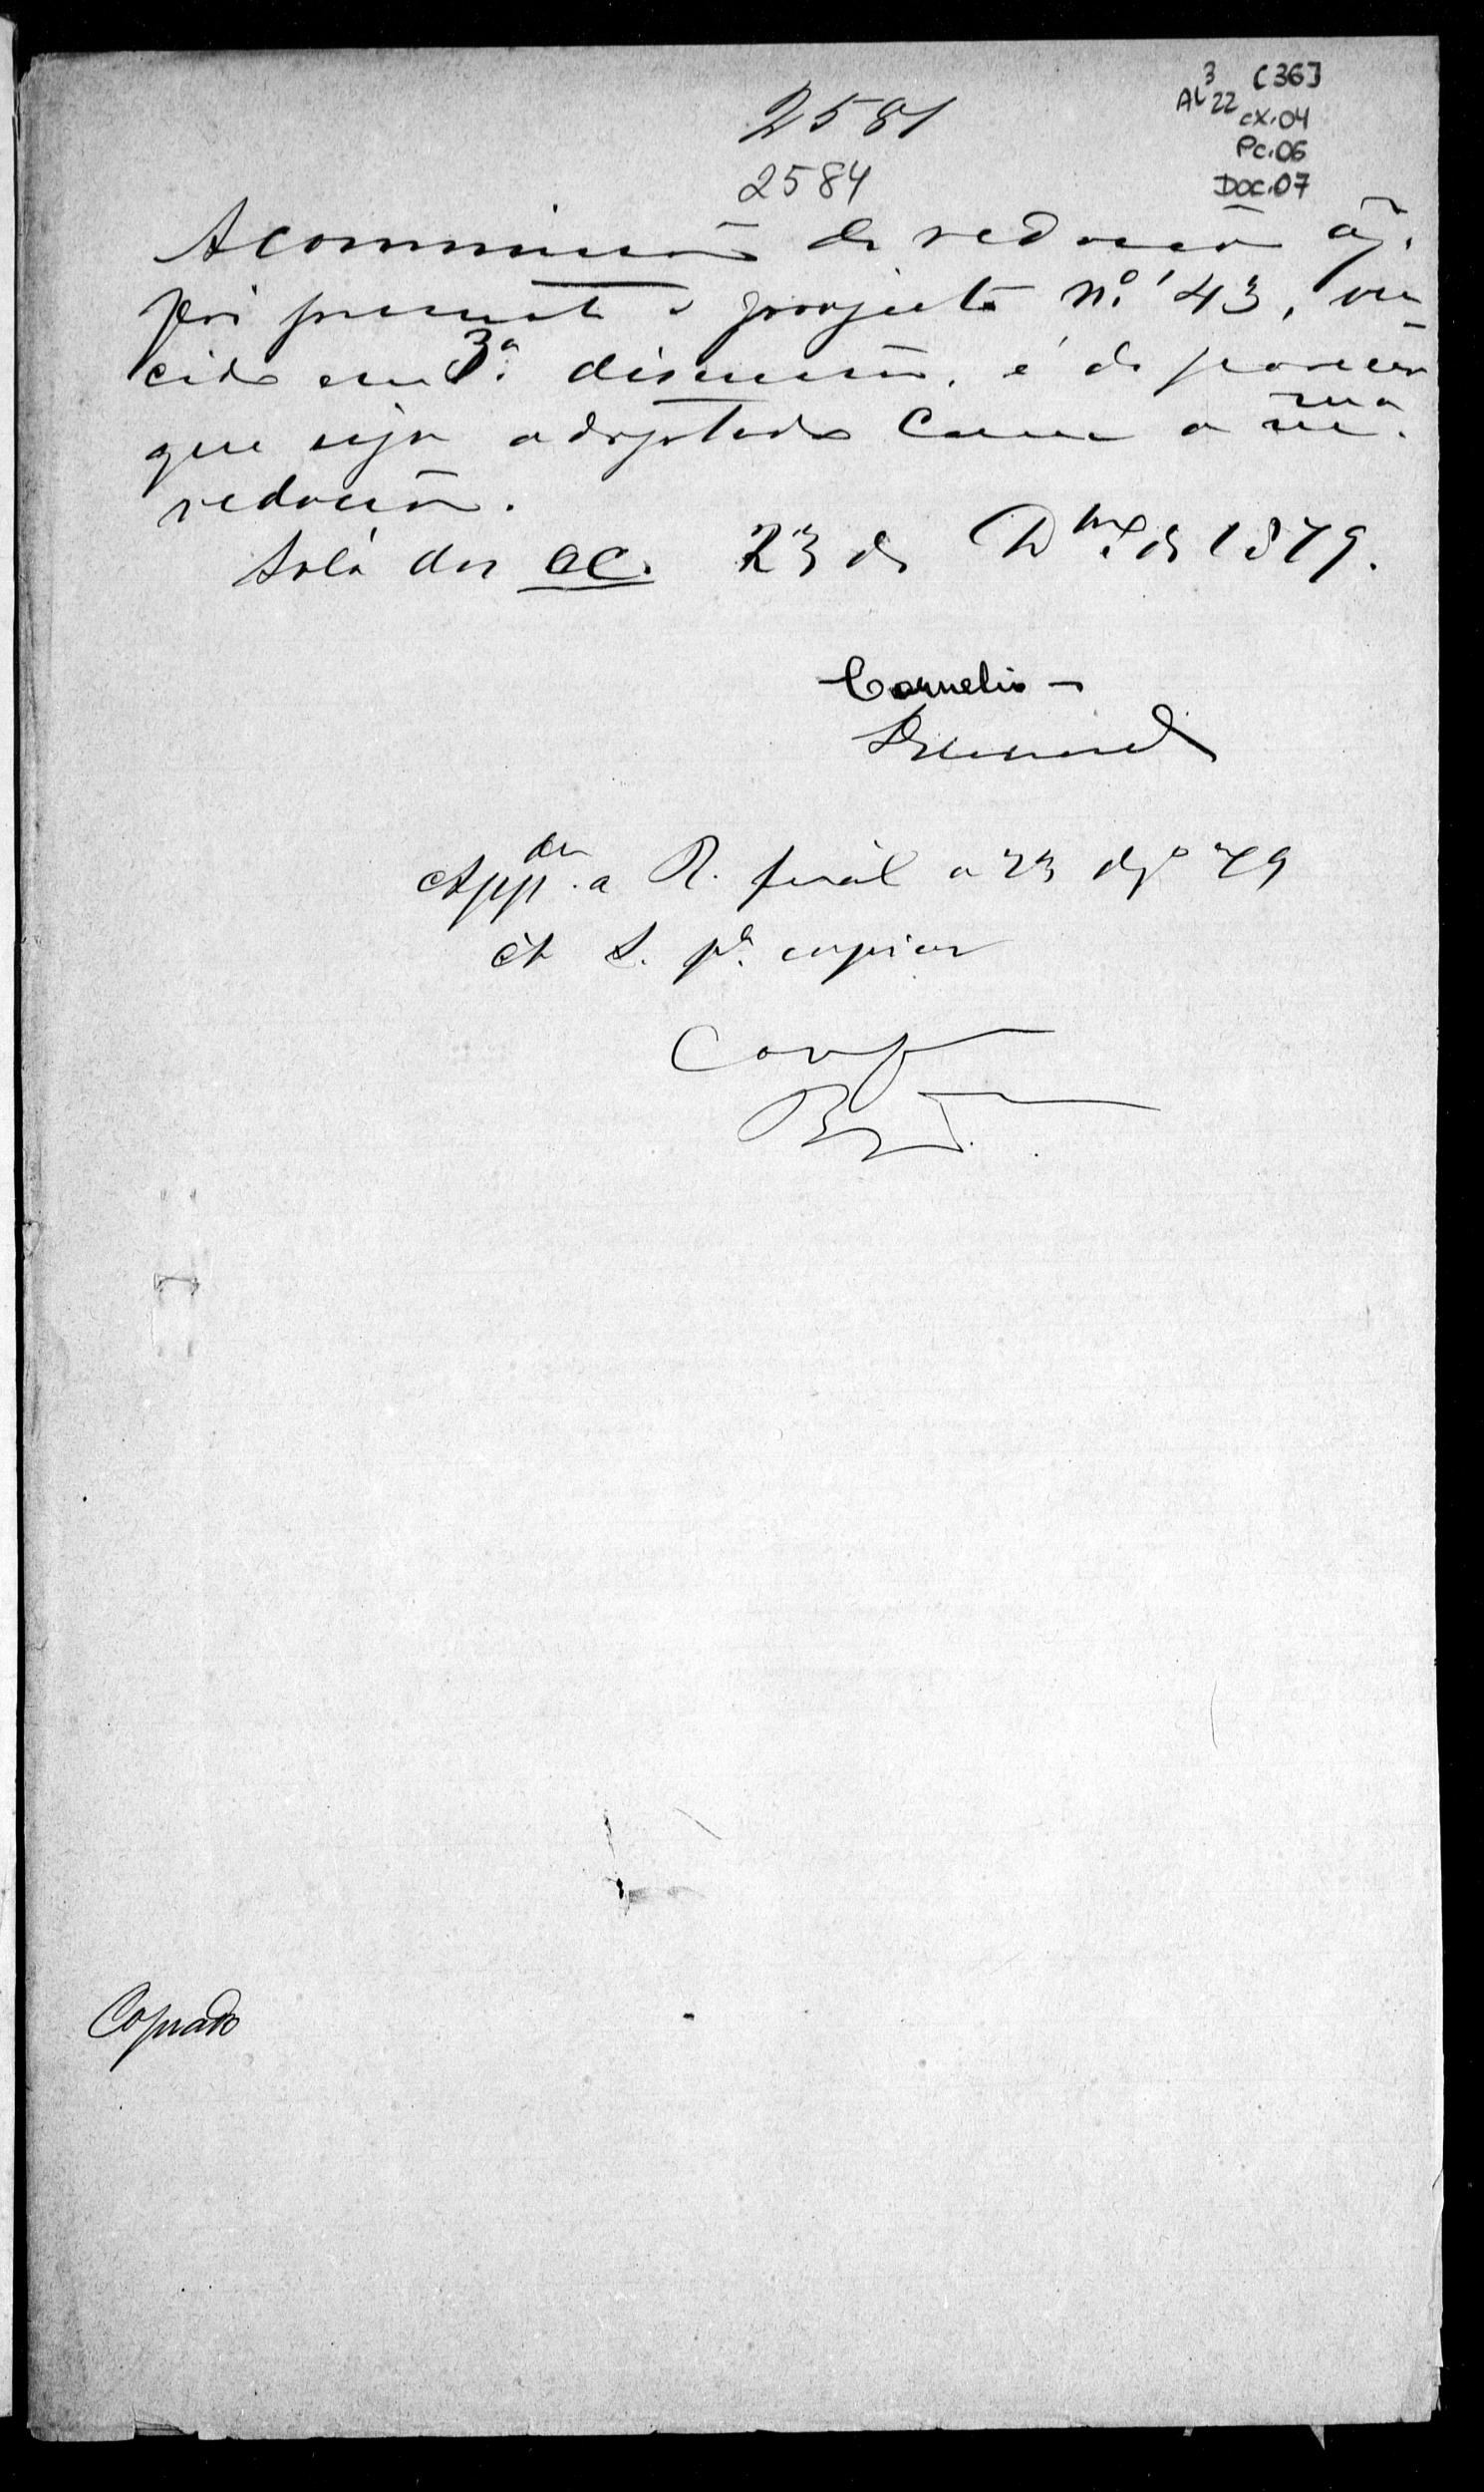 2581
2584
3 [36]
AL 22
cx.04
Pc.06
Doc.07
A commissão de redacção a q.
foi presente o projecto nº 43, ven-
cido em 3ª discussão, é de parecer
que seja adoptado com a m.ma
redacção.
Sala das cc. 23 de Dzb.º de 1879.
Cornelio
App.da a R. final a 23 dz.º 79
Á S. p.ª copiar
Copiado